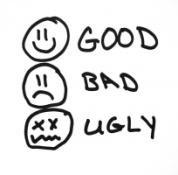 GOOD
BAD
UGLY